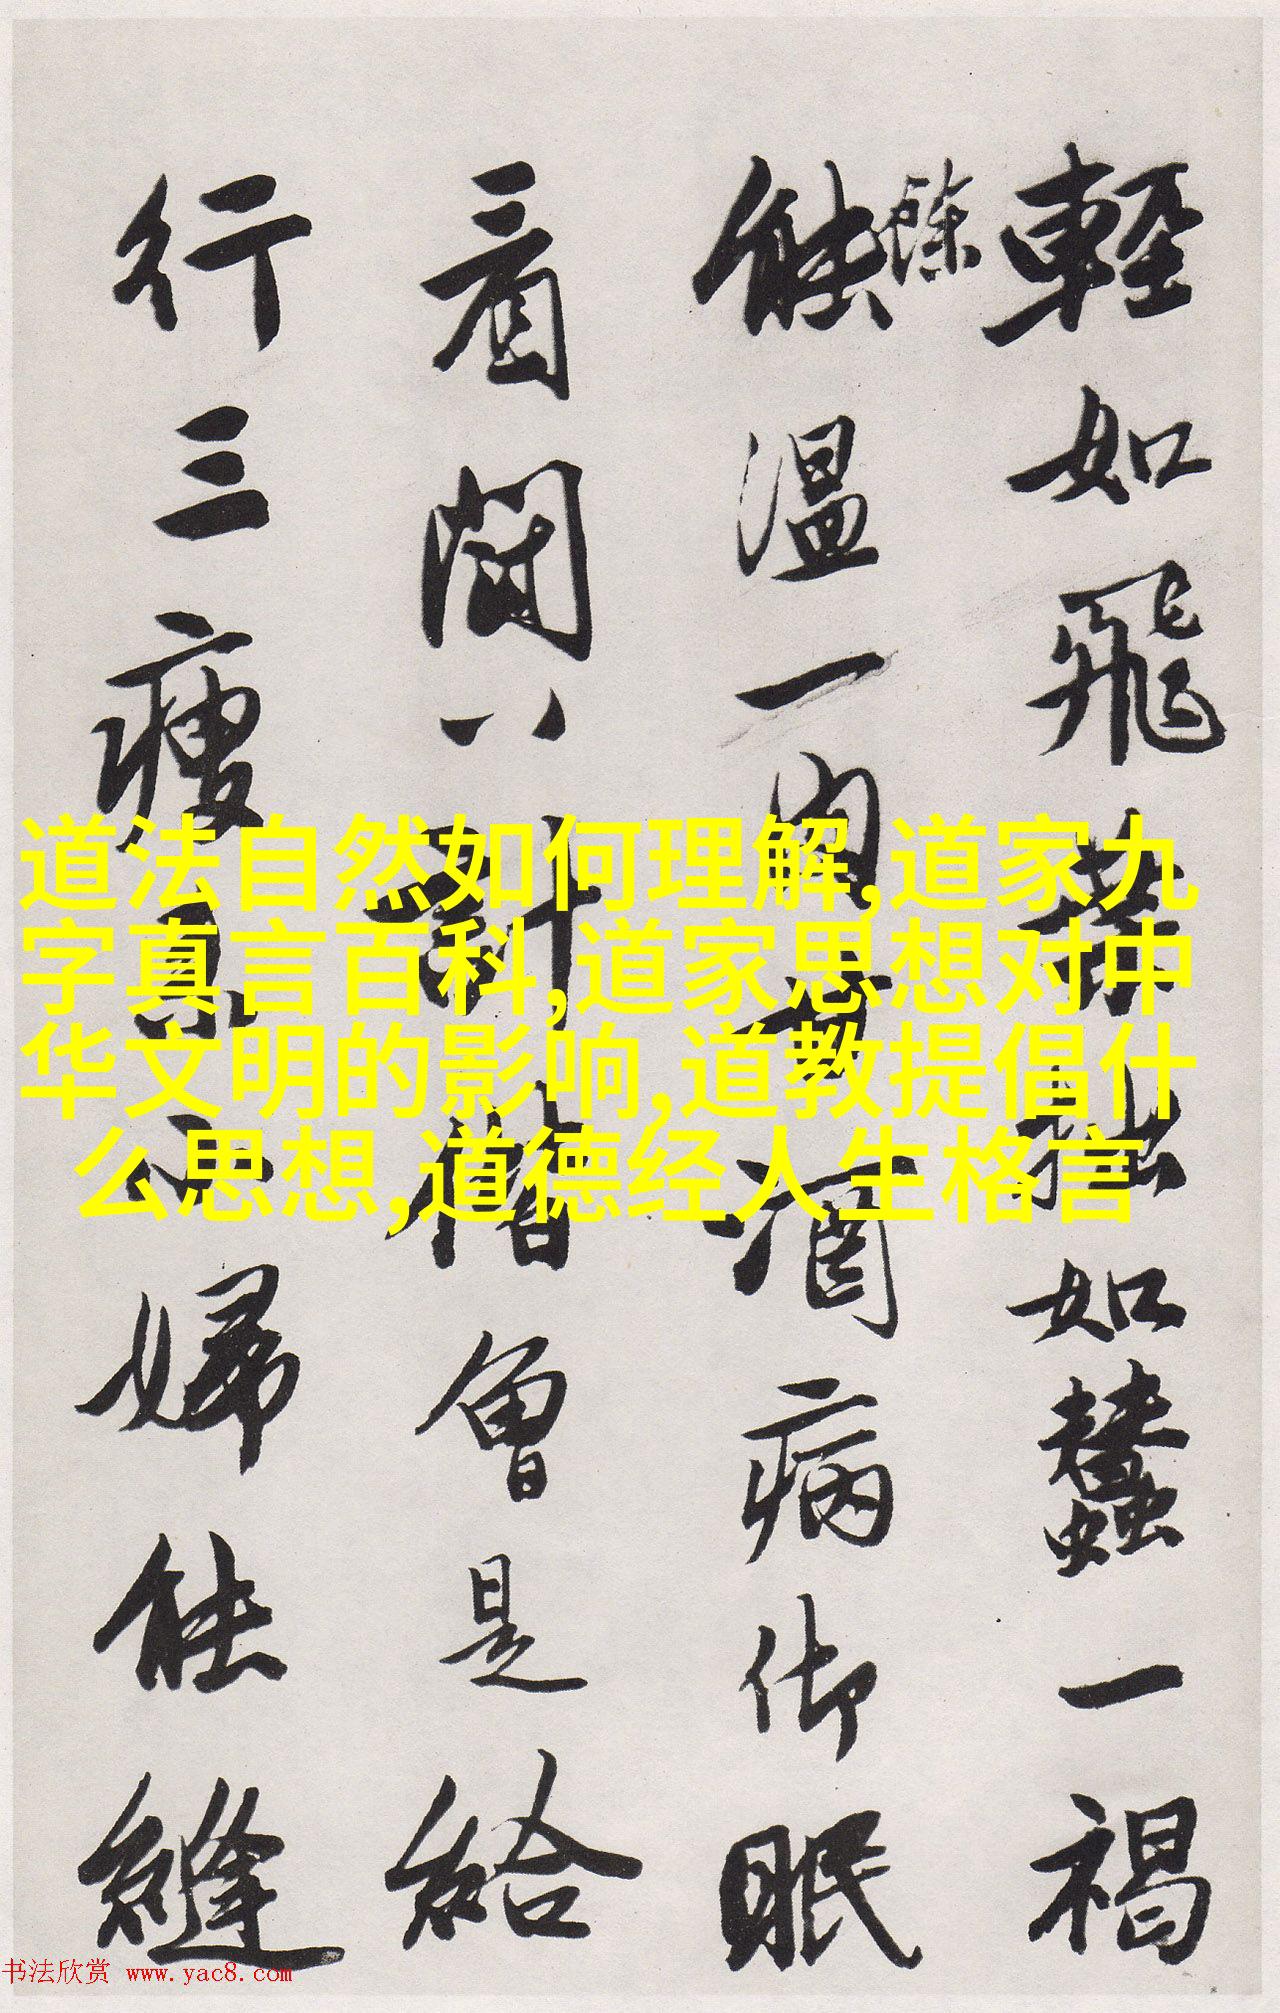 輕如飛拙如蠶一褐
餘
能溫一酒病御眠
看八計偕曾是給
行三瘦婦能縫
道法自然如何理解,道家九
字真言百科,道家思想对中
华文明的影响,道教提倡什
么思想,道德经人生格言
书法欣赏 www.yac8.com